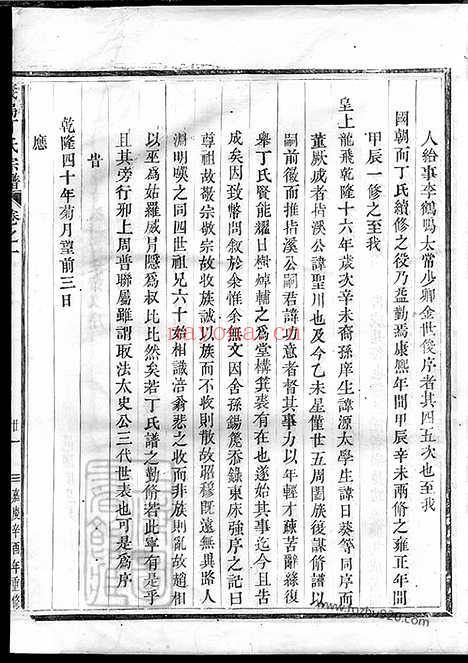 人給事李鶴鳴太常少卿金世俊序者其四五次也至我
國朝而丁氏續修之役乃益勤焉康熙年間甲辰辛未兩脩之雍正年間
甲辰一修之至我
皇上龍飛乾隆十六年歲次辛未裔孫庠生諱源太學生諱日葵等同序而
董厥成者梢溪公諱聖川也及今乙未星僅廿五周閤族復謀脩譜以
嗣前徽而推梢溪公嗣君諱力意者督其事力以年輕才疎苦辭緣復
舉丁氏賢能耀日樹焯輔之爲堂構箕裘有在於是始其事迄今且蕆
成矣因致幣問敘於余惟余無文因舍孫錫忝錄東床強序之記曰
尊祖故敬宗敬宗故收族誠以族而不收則散故昭穆既遠無異路人
淵明嘆之同四世祖兄六十不相識浩翁悲之收而非族則亂故趙相
以巫爲姑羅威冐隱爲叔比比然矣若丁氏譜之勤脩若此寧有是於
且其旁行邪上周普聯屬雖謂取法太史公三代世表也可已爲序
旹
乾隆四十年菊月望前三日
應
丁氏宗譜
卷之一
嘉慶辛酉年重修
www.fozhu920.com
nayona.cn